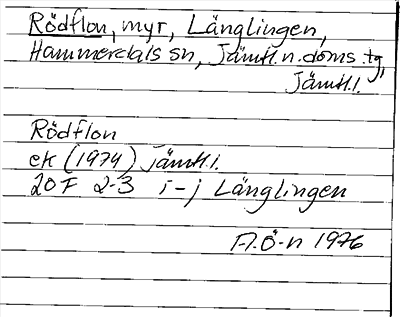 Rödflon, myr, Länglingen,
Hammerdals sn, Jämtl. n. doms. tg,
Jämtl. l.
Rödflon
ek (1974) Jämtl. l.
20F 2-3 i-j Länglingen
A.Ö-n 1976